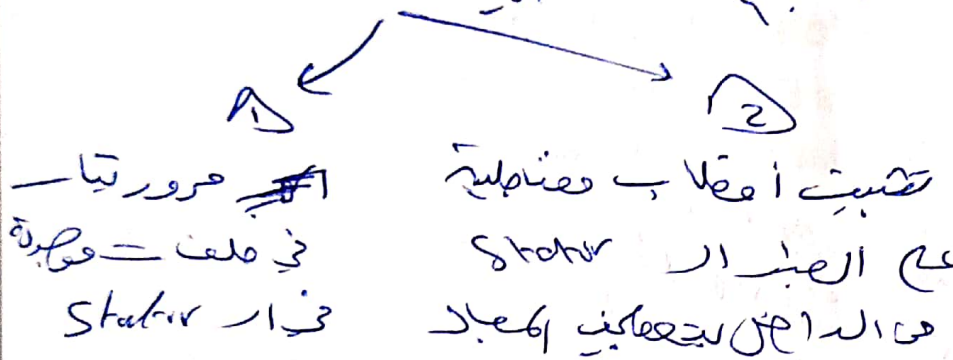 1
2
مرور تيار
في ملفات موجودة
في ال Stator
تثبيت أقطاب مغناطيسية
على الجدار ال Stator
من الداخل